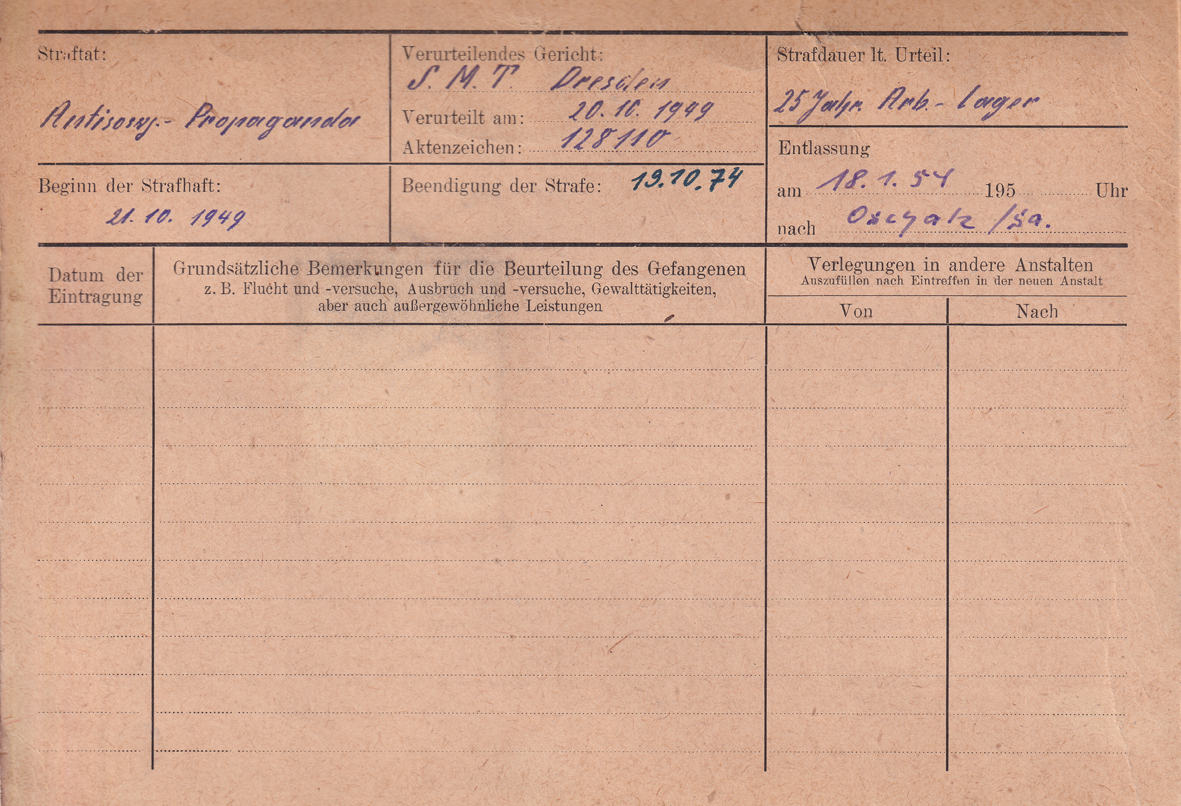 Straftat:
Antisowj.- Propaganda
Verurteilendes Gericht:
S. M. T. Dresden
Verurteilt am: 20.10.1949
Aktenzeichen: 128110
Strafdauer lt. Urteil:
25 Jahr. Arb.- Lager
Beginn der Strafhaft:
21.10.1949
Beendigung der Strafe: 19.10.74
Entlassung
am 18.1.54 195 Uhr
nach Oschatz /Sa.
Datum der
Eintragung
Grundsätzliche Bemerkungen für die Beurteilung des Gefangenen
z. B. Flucht und -versuche, Ausbruch und -versuche, Gewalttätigkeiten,
aber auch außergewöhnliche Leistungen
Verlegungen in andere Anstalten
Auszufüllen nach Eintreffen in der neuen Anstalt
Von Nach